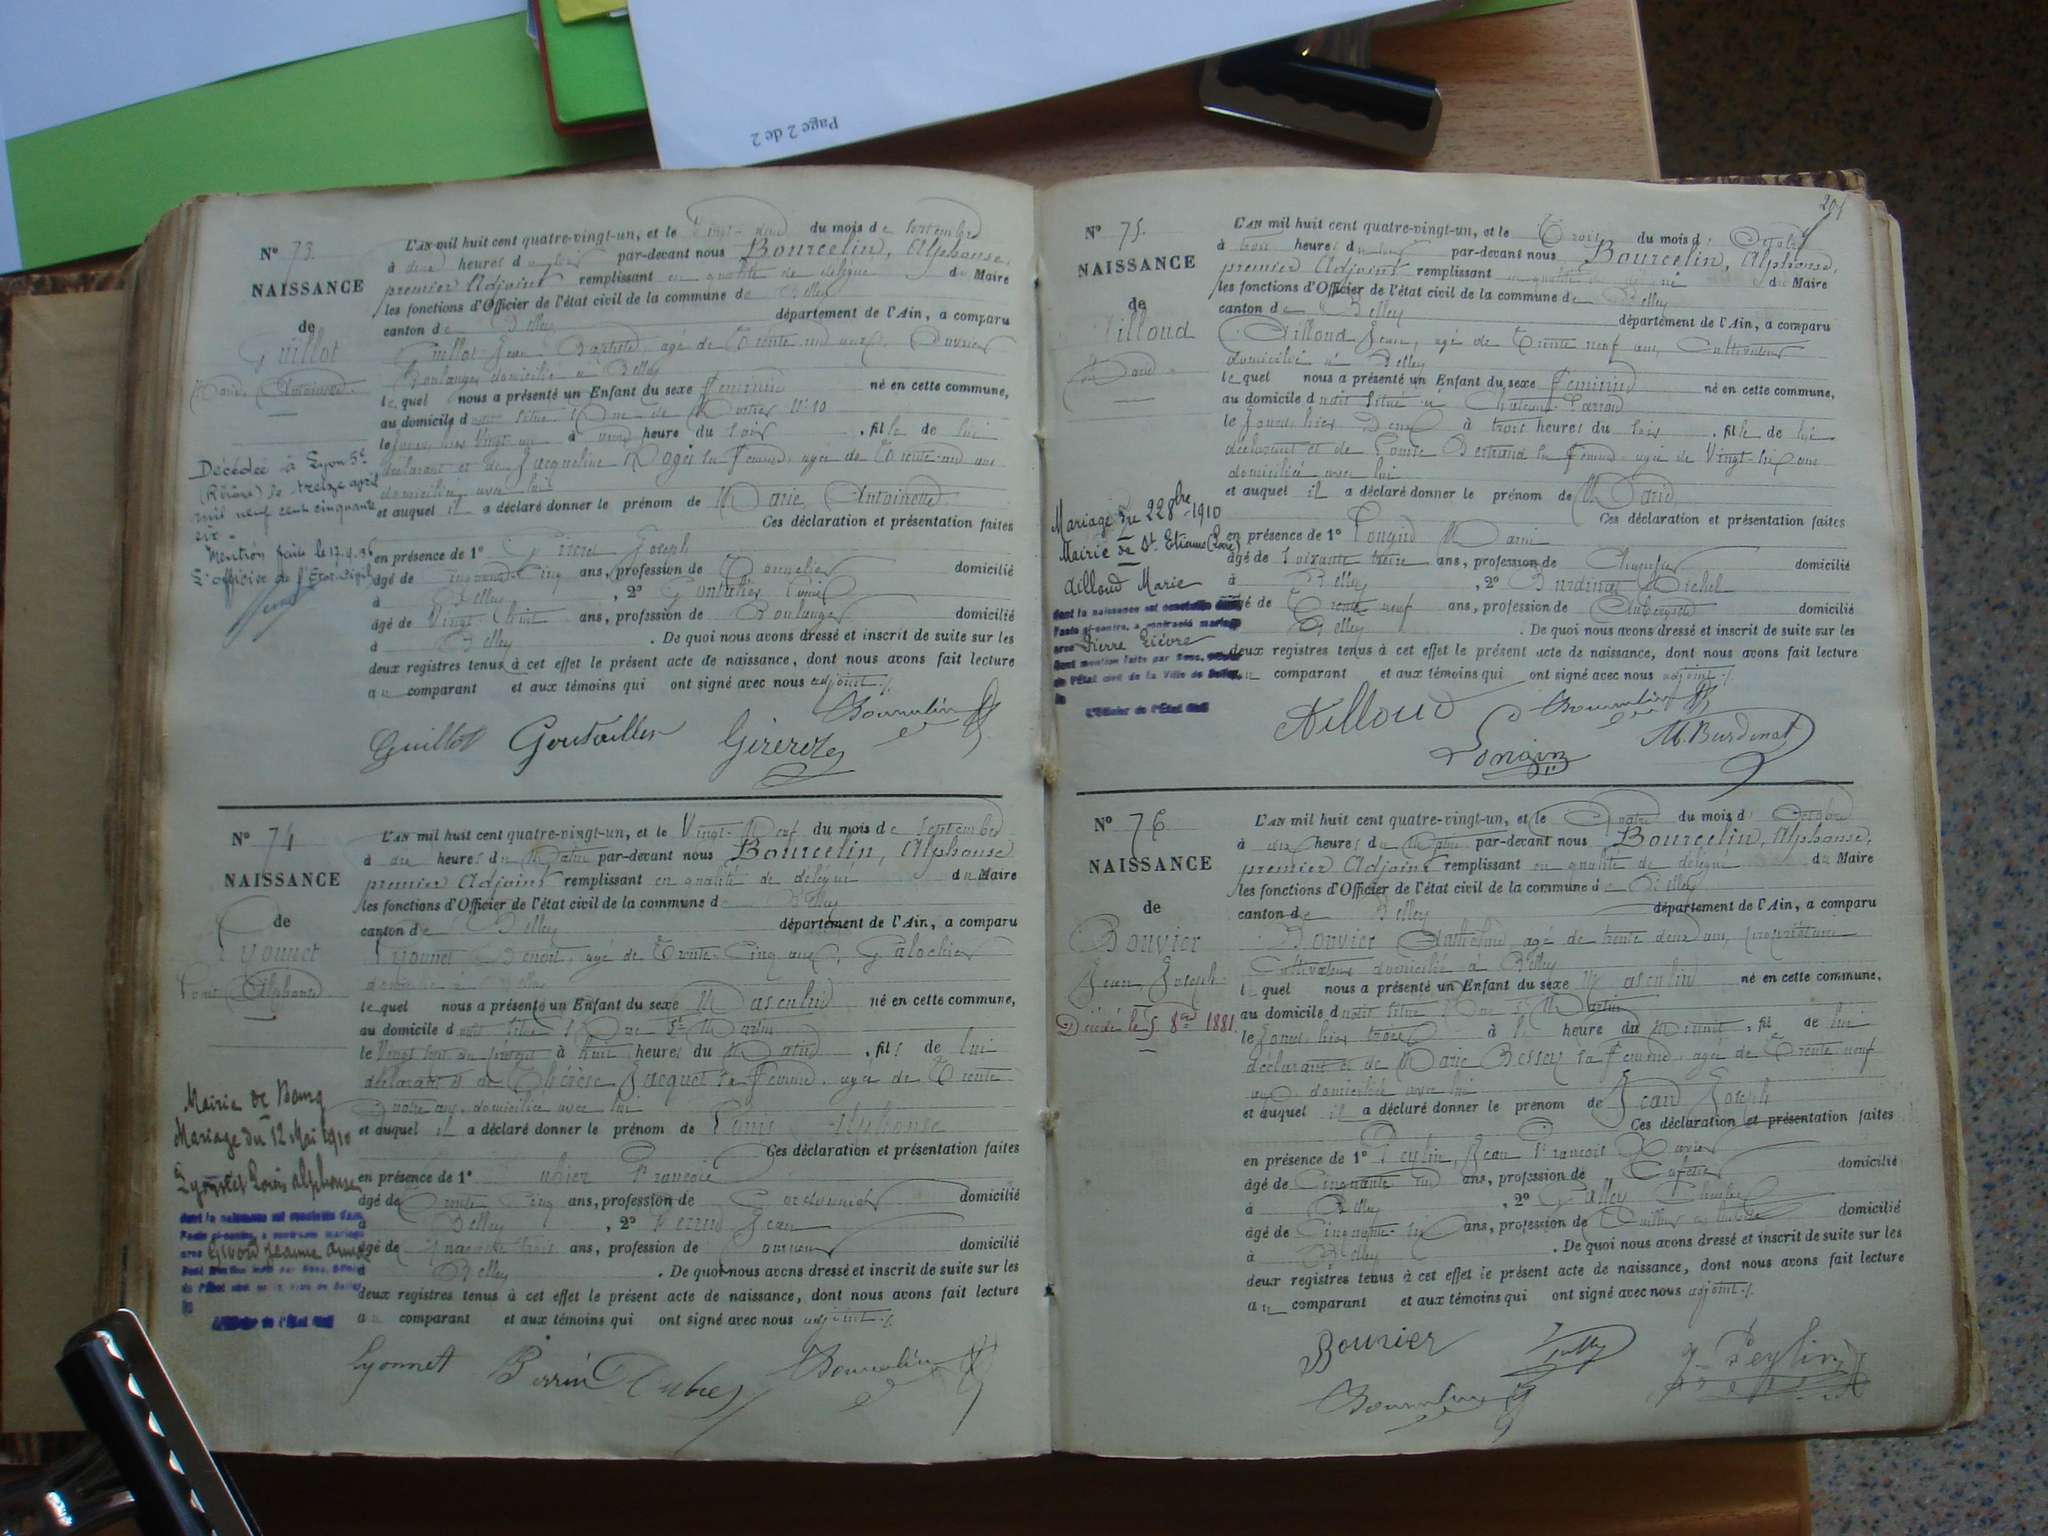 Page 2 de 2
Nº 73.
NAISSANCE
de
Guillot
Marie Antoinette
Décédée à Lyon 5e
(Rhône) le treize avril
mil neuf cent cinquante
six.
Mention faite le 17.4.56
L'officier de l'Etat-Civil
L'AN mil huit cent quatre-vingt-un, et le Vingt- du mois de septembre
à heures du par-devant nous Bourcelin, Alphonse,
premier Adjoint remplissant en qualité de délégué du Maire
les fonctions d'Officier de l'état civil de la commune de Belley
canton de Belley département de l'Ain, a comparu
Guillot Jean Baptiste, agé de Trente ans, Ouvrier
Boulanger domicilié à Belley
lequel nous a présenté un Enfant du sexe féminin né en cette commune,
au domicile situé Rue de N: 10
le à heure du soir, fille de lui
déclarant et de Jacqueline Roger sa femme, agée de Trente ans
domiciliée avec lui
et auquel il a déclaré donner le prénom de Marie Antoinette
Ces déclaration et présentation faites
en présence de 1º Joseph
âgé de Cinquante-Cinq ans, profession de Tonnelier domicilié
à Belley, 2º
âgé de Vingt-huit ans, profession de Boulanger domicilié
à Belley. De quoi nous avons dressé et inscrit de suite sur les
deux registres tenus à cet effet le présent acte de naissance, dont nous avons fait lecture
au comparant et aux témoins qui ont signé avec nous adjoint ./.
Bourcelin
Guillot
Nº 74
NAISSANCE
de
Lyonnet
Louis Alphonse
Mairie de Bourg
Mariage du 12 Mai 1910
Lyonnet Louis Alphonse
dont la naissance est constatée dans
l'acte ci-contre, a contracté mariage
avec Jeanne
dont mention faite par Nous, Officier
de l'État civil de la Ville de Belley,
le
L'Officier de l'État Civil
L'AN mil huit cent quatre-vingt-un, et le Vingt-Neuf du mois de septembre
à dix heures du Matin par-devant nous Bourcelin, Alphonse
premier Adjoint remplissant en qualité de délégué du Maire
les fonctions d'Officier de l'état civil de la commune de Belley
canton de Belley département de l'Ain, a comparu
Lyonnet Benoit, agé de Trente-Cinq ans, Galochier
domicilié à Belley
lequel nous a présenté un Enfant du sexe Masculin né en cette commune,
au domicile situé Rue St Martin
le Vingt sept du présent à huit heures du Matin, fils de lui
déclarant et de Thérèse Jacquet sa femme, agée de Trente
Quatre ans, domiciliée avec lui
et auquel il a déclaré donner le prénom de Louis Alphonse
Ces déclaration et présentation faites
en présence de 1º François
âgé de Trente Cinq ans, profession de Cordonnier domicilié
à Belley, 2º Perrin Jean
âgé de Quarante trois ans, profession de domicilié
à Belley. De quoi nous avons dressé et inscrit de suite sur les
deux registres tenus à cet effet le présent acte de naissance, dont nous avons fait lecture
au comparant et aux témoins qui ont signé avec nous adjoint ./.
Lyonnet Perrin Bourcelin
201
Nº 75.
NAISSANCE
de
Ailloud
Marie
Mariage du 22 8bre 1910
Mairie de St Etienne (Loire)
Ailloud Marie
dont la naissance est constatée dans
l'acte ci-contre, a contracté mariage
avec Pierre Lièvre
dont mention faite par Nous, Officier
de l'État civil de la Ville de Belley,
le
L'Officier de l'État Civil
L'AN mil huit cent quatre-vingt-un, et le Trois du mois d' Octobre
à trois heures du par-devant nous Bourcelin, Alphonse,
premier Adjoint remplissant en qualité de délégué du Maire
les fonctions d'Officier de l'état civil de la commune de Belley
canton de Belley département de l'Ain, a comparu
Ailloud Jean, agé de Trente neuf ans, Cultivateur
domicilié à Belley
lequel nous a présenté un Enfant du sexe Féminin né en cette commune,
au domicile dudit situé à
le jour d'hier Deux à trois heures du soir, fille de lui
déclarant et de Bertrand sa femme, agée de Vingt-six ans
domiciliée avec lui
et auquel il a déclaré donner le prénom de Marie
Ces déclaration et présentation faites
en présence de 1º
âgé de soixante treize ans, profession de domicilié
à Belley, 2º Burdinat Michel
âgé de Trente neuf ans, profession de Aubergiste domicilié
à Belley. De quoi nous avons dressé et inscrit de suite sur les
deux registres tenus à cet effet le présent acte de naissance, dont nous avons fait lecture
au comparant et aux témoins qui ont signé avec nous adjoint ./.
Ailloud Bourcelin
M. Burdinat
Nº 76
NAISSANCE
de
Bouvier
Jean Joseph
Décédé le 5 8bre 1881.
L'AN mil huit cent quatre-vingt-un, et le Quatre du mois d' Octobre
à dix heures du Matin par-devant nous Bourcelin, Alphonse,
premier Adjoint remplissant en qualité de délégué du Maire
les fonctions d'Officier de l'état civil de la commune de Belley
canton de Belley département de l'Ain, a comparu
Bouvier Anthelme, agé de trente deux ans, propriétaire
Cultivateur domicilié à Belley
lequel nous a présenté un Enfant du sexe Masculin né en cette commune,
au domicile dudit situé Rue St Martin
le jour d'hier trois à heure du, fils de lui
déclarant et de Marie Bessey sa femme, agée de Trente neuf
ans, domiciliée avec lui
et auquel il a déclaré donner le prénom de Jean Joseph
Ces déclaration et présentation faites
en présence de 1º Peylin, Jean François Xavier
âgé de Cinquante ans, profession de Cafetier domicilié
à Belley, 2º
âgé de Cinquante-six ans, profession de Tailleur domicilié
à Belley. De quoi nous avons dressé et inscrit de suite sur les
deux registres tenus à cet effet le présent acte de naissance, dont nous avons fait lecture
au comparant et aux témoins qui ont signé avec nous adjoint ./.
Bouvier Peylin
Bourcelin